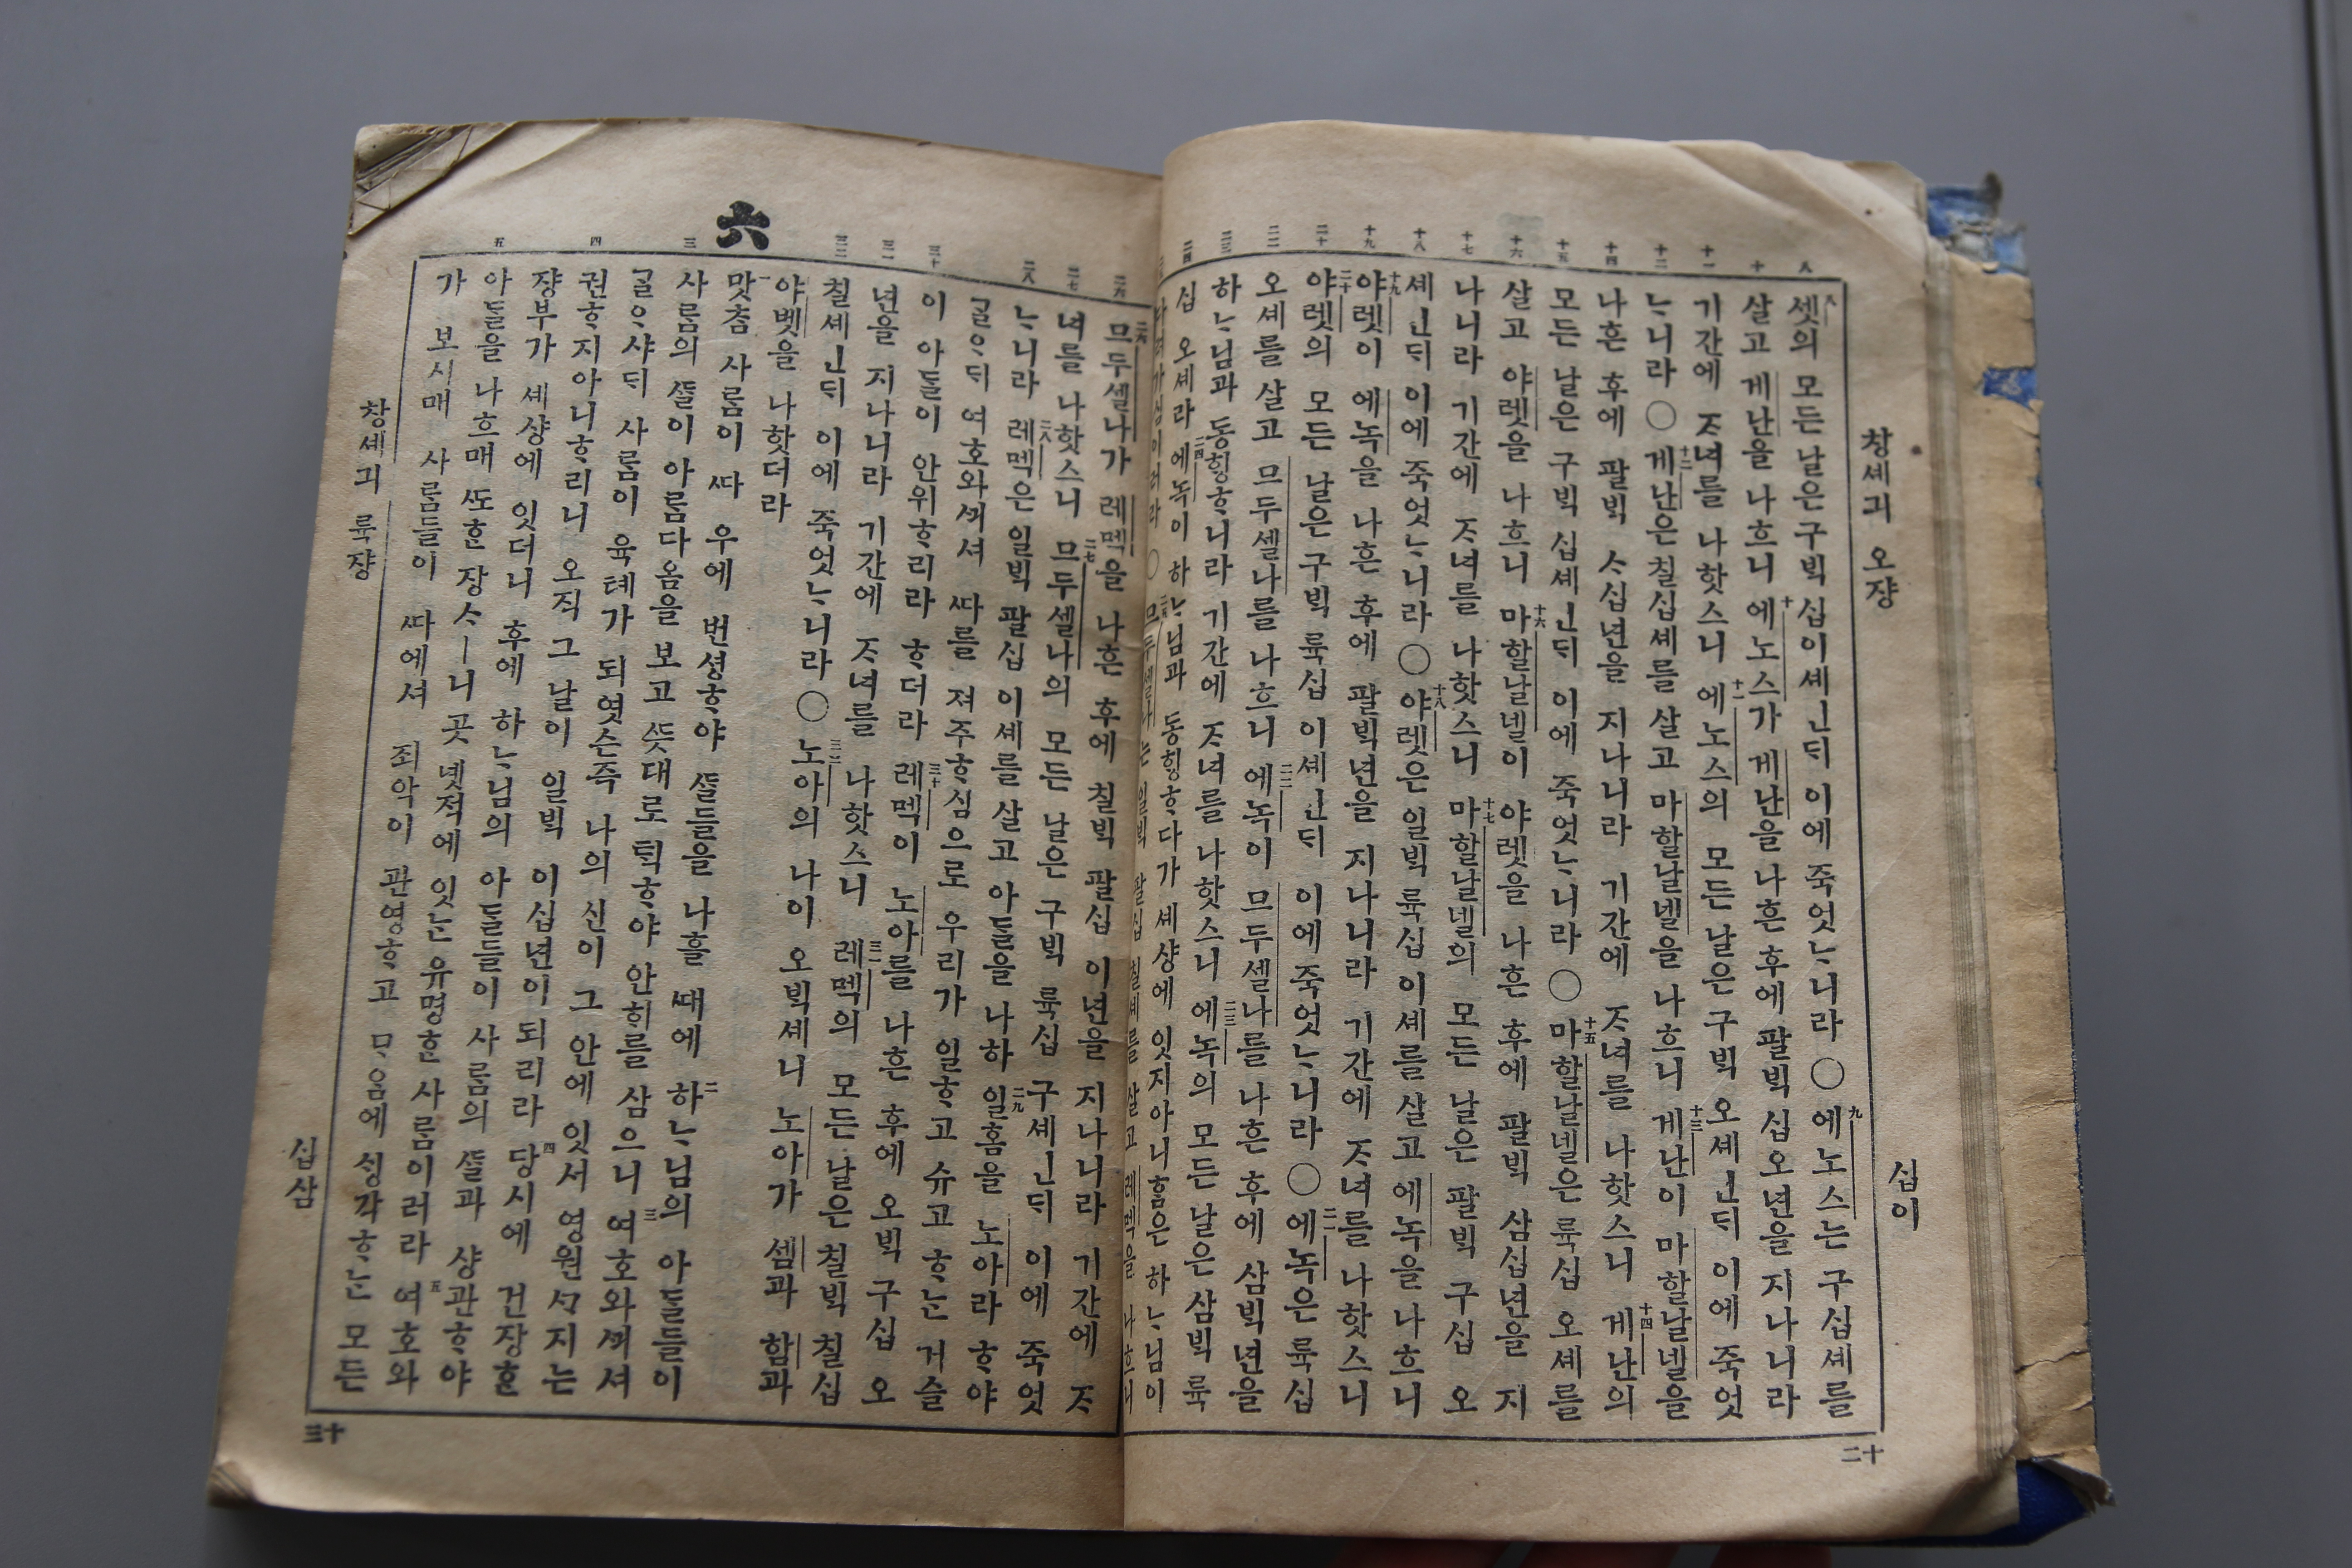 창셰긔 오쟝
십이
十二
八 十 十一 十二 十四 十五 十六 十七 十八 十九 二十 二二 二三 二四
八셋의 모든 날은 구ᄇᆡᆨ 십이셰인ᄃᆡ 이에 죽엇ᄂᆞ니라 ○ 九에노스는 구십셰를
살고 게난을 나흐니 十에노스가 게난을 나흔 후에 팔ᄇᆡᆨ 십오년을 지나니라
기간에 ᄌᆞ녀를 나핫스니 十一에노스의 모든 날은 구ᄇᆡᆨ 오셰인ᄃᆡ 이에 죽엇
ᄂᆞ니라 ○ 十二게난은 칠십셰를 살고 마할날넬을 나흐니 十三게난이 마할날넬을
나흔 후에 팔ᄇᆡᆨ ᄉᆞ십년을 지나니라 기간에 ᄌᆞ녀를 나핫스니 十四게난의
모든 날은 구ᄇᆡᆨ 십셰인ᄃᆡ 이에 죽엇ᄂᆞ니라 ○ 十五마할날넬은 륙십 오셰를
살고 야렛을 나흐니 十六마할날넬이 야렛을 나흔 후에 팔ᄇᆡᆨ 삼십년을 지
나니라 기간에 ᄌᆞ녀를 나핫스니 十七마할날넬의 모든 날은 팔ᄇᆡᆨ 구십 오
셰인ᄃᆡ 이에 죽엇ᄂᆞ니라 ○ 十八야렛은 일ᄇᆡᆨ 륙십 이셰를 살고 에녹을 나흐니
十九야렛이 에녹을 나흔 후에 팔ᄇᆡᆨ년을 지나니라 기간에 ᄌᆞ녀를 나핫스니
二十야렛의 모든 날은 구ᄇᆡᆨ 륙십 이셰인ᄃᆡ 이에 죽엇ᄂᆞ니라 ○ 二一에녹은 륙십
오셰를 살고 므두셀나를 나흐니 二二에녹이 므두셀나를 나흔 후에 삼ᄇᆡᆨ년을
하ᄂᆞ님과 동ᄒᆡᆼᄒᆞ니라 기간에 ᄌᆞ녀를 나핫스니 二三에녹의 모든 날은 삼ᄇᆡᆨ 륙
십 오셰라 二四에녹이 하ᄂᆞ님과 동ᄒᆡᆼᄒᆞ다가 셰샹에 잇지아니ᄒᆞᆷ은 하ᄂᆞ님이
ᄃᆞ려가심이러라 ○ 므두셀나는 일ᄇᆡᆨ 팔십 칠셰를 살고 레멕을 나흐니
二六 二七 二八 三十 三一 三二 六 三 四 五
二六므두셀나가 레멕을 나흔 후에 칠ᄇᆡᆨ 팔십 이년을 지나니라 기간에 ᄌᆞ
녀를 나핫스니 二七므두셀나의 모든 날은 구ᄇᆡᆨ 륙십 구셰인ᄃᆡ 이에 죽엇
ᄂᆞ니라 二八레멕은 일ᄇᆡᆨ 팔십 이셰를 살고 아ᄃᆞᆯ을 나하 二九일홈을 노아라 ᄒᆞ야
ᄀᆞᆯᄋᆞᄃᆡ 여호와ᄭᅴ셔 ᄯᅡ를 져주ᄒᆞ심으로 우리가 일ᄒᆞ고 슈고 ᄒᆞᄂᆞᆫ 거슬
이 아ᄃᆞᆯ이 안위ᄒᆞ리라 ᄒᆞ더라 三十레멕이 노아를 나흔 후에 오ᄇᆡᆨ 구십 오
년을 지나니라 기간에 ᄌᆞ녀를 나핫스니 三一레멕의 모든 날은 칠ᄇᆡᆨ 칠십
칠셰인ᄃᆡ 이에 죽엇ᄂᆞ니라 ○ 三二노아의 나이 오ᄇᆡᆨ셰니 노아가 셈과 함과
야벳을 나핫더라
一맛ᄎᆞᆷ 사ᄅᆞᆷ이 ᄯᅡ 우에 번셩ᄒᆞ야 ᄯᆞᆯ들을 나흘 ᄯᅢ에 二하ᄂᆞ님의 아ᄃᆞᆯ들이
사ᄅᆞᆷ의 ᄯᆞᆯ이 아ᄅᆞᆷ다옴을 보고 ᄯᅳᆺ대로 ᄐᆡᆨᄒᆞ야 안ᄒᆡ를 삼으니 三여호와ᄭᅴ셔
ᄀᆞᆯᄋᆞ샤ᄃᆡ 사ᄅᆞᆷ이 육톄가 되엿슨즉 나의 신이 그 안에 잇서 영원ᄭᆞ지는
권ᄒᆞ지아니ᄒᆞ리니 오직 그 날이 일ᄇᆡᆨ 이십년이 되리라 四당시에 건장ᄒᆞᆫ
쟝부가 셰샹에 잇더니 후에 하ᄂᆞ님의 아ᄃᆞᆯ들이 사ᄅᆞᆷ의 ᄯᆞᆯ과 샹관ᄒᆞ야
아ᄃᆞᆯ을 나흐매 ᄯᅩᄒᆞᆫ 장ᄉᆞㅣ니 곳 녯적에 잇ᄂᆞᆫ 유명ᄒᆞᆫ 사ᄅᆞᆷ이러라 五여호와
가 보시매 사ᄅᆞᆷ들이 ᄯᅡ에셔 죄악이 관영ᄒᆞ고 ᄆᆞᄋᆞᆷ에 ᄉᆡᆼ각ᄒᆞᄂᆞᆫ 모든
창셰긔 륙쟝
십삼
十三